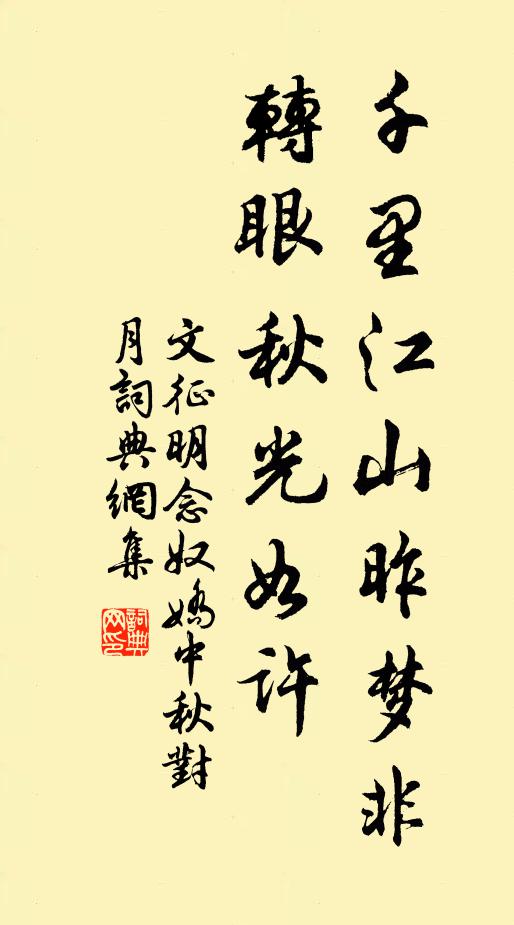 千里江山昨梦非
轉眼秋光如許
文征明念奴嬌中秋對
月詞典網集
詞典
网印